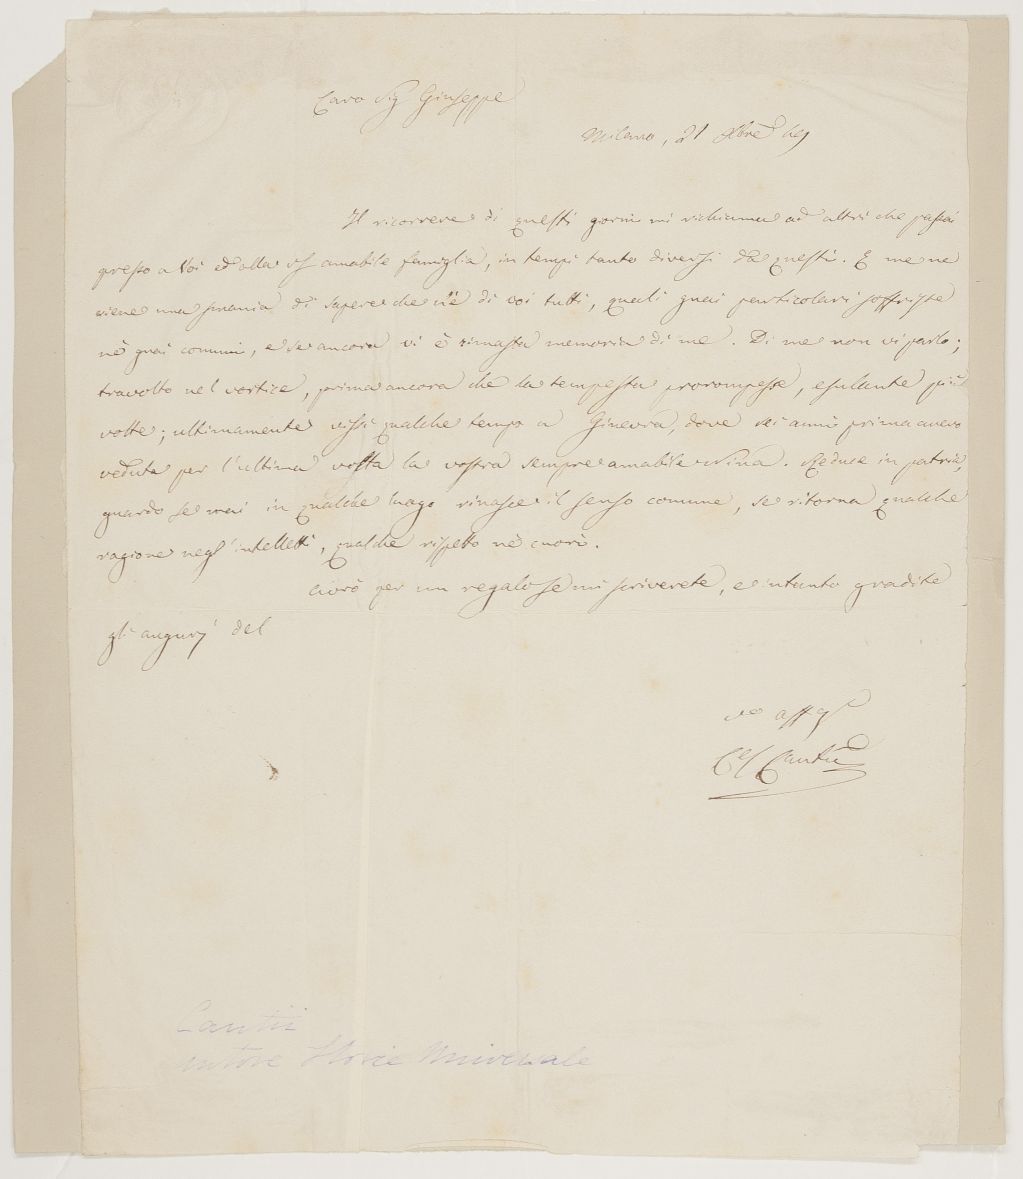 Caro Sig Giuseppe
Milano, 21 Xbre
Il ricorrere di questi giorni mi richiama ad altri che passai
presso a Voi ed alla vs amabile famiglia, in tempi tanto diversi da questi. E me ne
viene una smania di sapere che n'è di voi tutti, quali guai particolari soffriste
nè guai comuni, e se ancora vi è rimasta memoria di me. Di me non vi parlo;
travolto nel vortice, prima ancora che la tempesta prorompesse, esulante più
volte; ultimamente vissi qualche tempo a Ginevra, dove sei anni prima avevo
veduta per l'ultima volta la vostra sempre amabile Nina. Reduce in patria,
guardo se mai in qualche luogo rinasce il senso comune, se ritorna qualche
ragione negl'intelletti, qualche rispetto nè cuori.
Avrò per un regalo se mi scriverete, e intanto gradite
gli augurj del
vo affmo
Ces Cantù
Cantù
autore Storie Universale